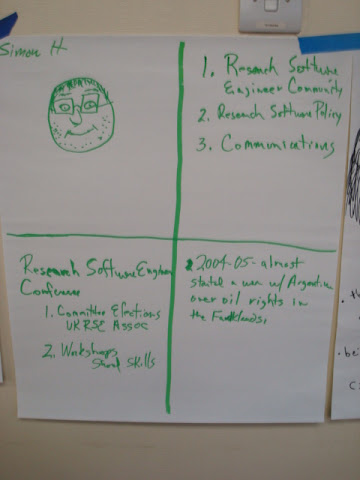 Simon H
1. Research Software
Engineer Community
2. Research Software Policy
3. Communications
Research Software Engineer
Conference
1. Committee Elections
UKRSE Assoc
2. Workshops
skills
2004-05 - almost
started a war w/ Argentina
over oil rights in
the Falklands.